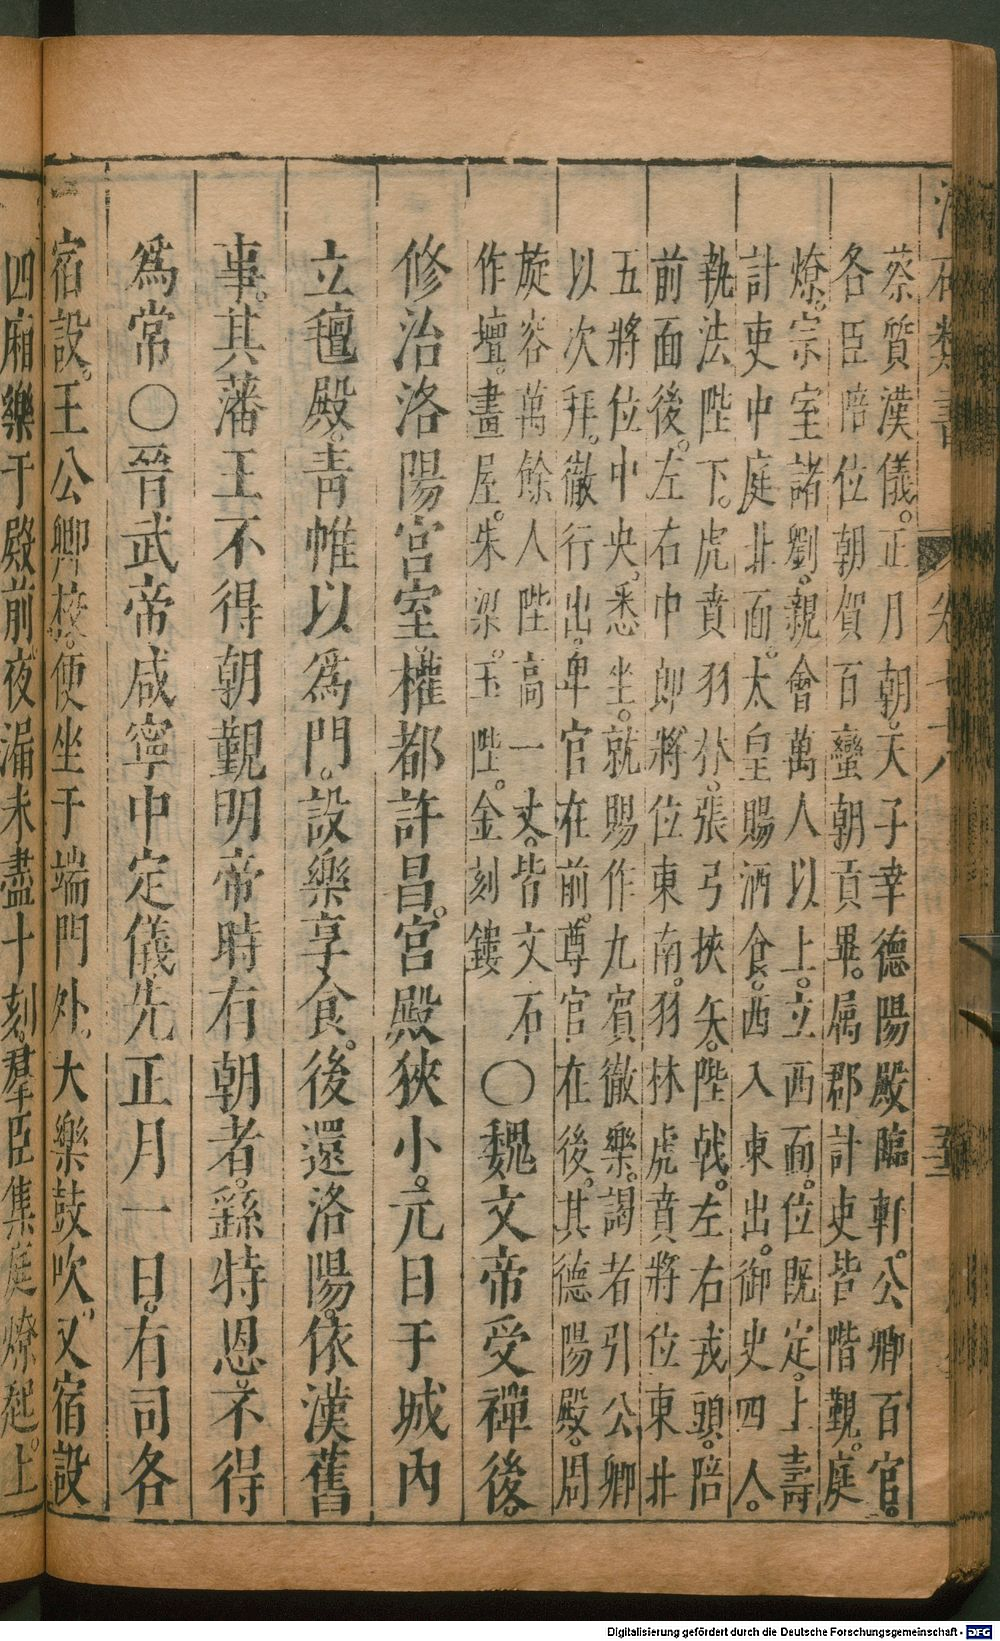 蔡質漢儀。正月朝。天子幸德陽殿臨軒。公卿百官。
各臣陪位朝賀百蠻朝貢畢。属郡計吏皆階覲。庭
燎。宗室諸劉。親會萬人以上。立西面。位既定。上壽
計吏中庭北面。太皇賜酒食。西入東出。御史四人。
執法陛下。虎賁羽林。張弓挾矢。陛戟。左右戎頭。陪
前面後。左右中郎將位東南。羽林虎賁將位東北
五將位中央。悉坐。就賜作九賓徹樂。謁者引公卿
以次拜。徹行出。卑官在前。尊官在後。其德陽殿。周
旋容萬餘人陛高一丈。皆文石
作壇。畫屋。朱梁。玉陛。金刻鏤
○魏文帝受禪後。
修治洛陽宮室。權都許昌。宮殿狹小。元日于城內
立氊殿。靑帷以爲門。設樂享食。後還洛陽。依漢舊
事。其藩王不得朝覲明帝時有朝者。繇特恩不得
爲常○晉武帝咸寧中定儀先正月一日。有司各
宿設。王公卿校。便坐于端門外。大樂鼓吹。又宿設
四廂樂于殿前。夜漏未盡十刻。羣臣集庭燎起。上
卷
Digitalisierung gefördert durch die Deutsche Forschungsgemeinschaft - DFG